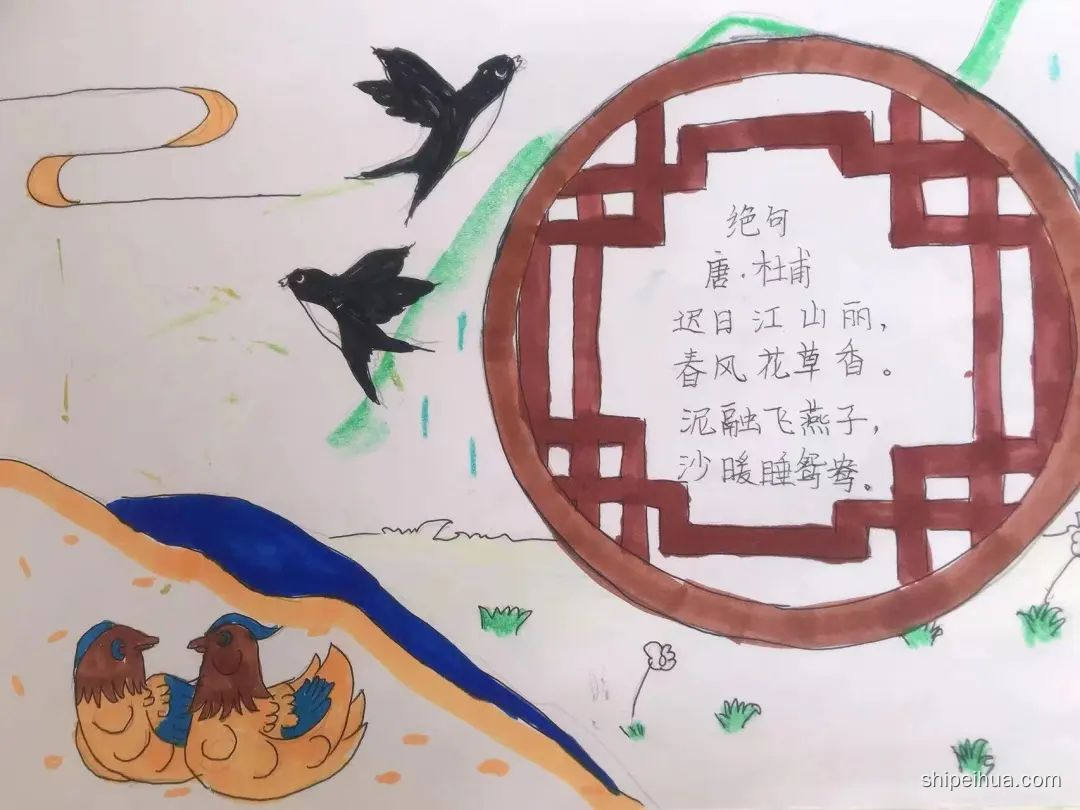 绝句
唐·杜甫
迟日江山丽，
春风花草香。
泥融飞燕子，
沙暖睡鸳鸯。
shipeihua.com